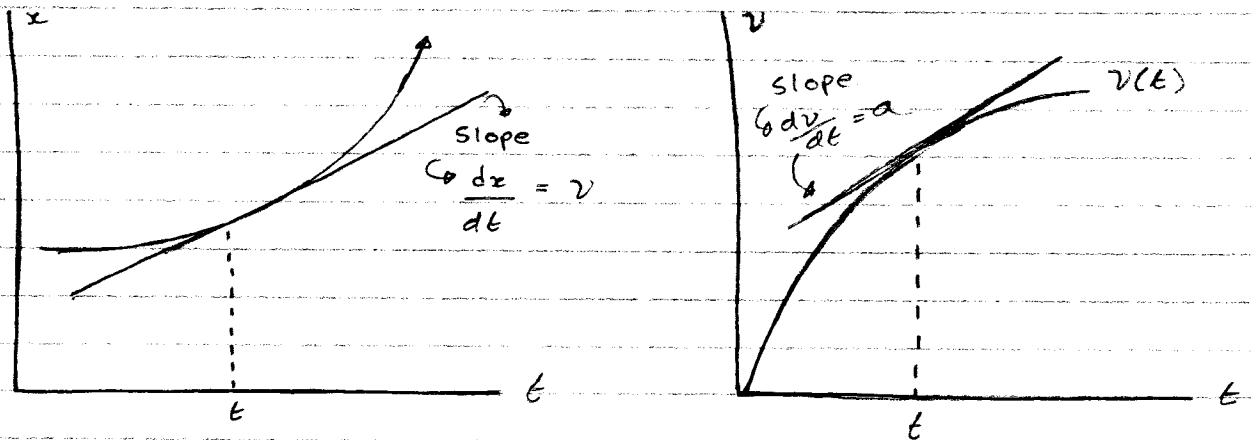 x
slope
dx/dt = v
t
t
v
slope
dv/dt = a
v(t)
t
t